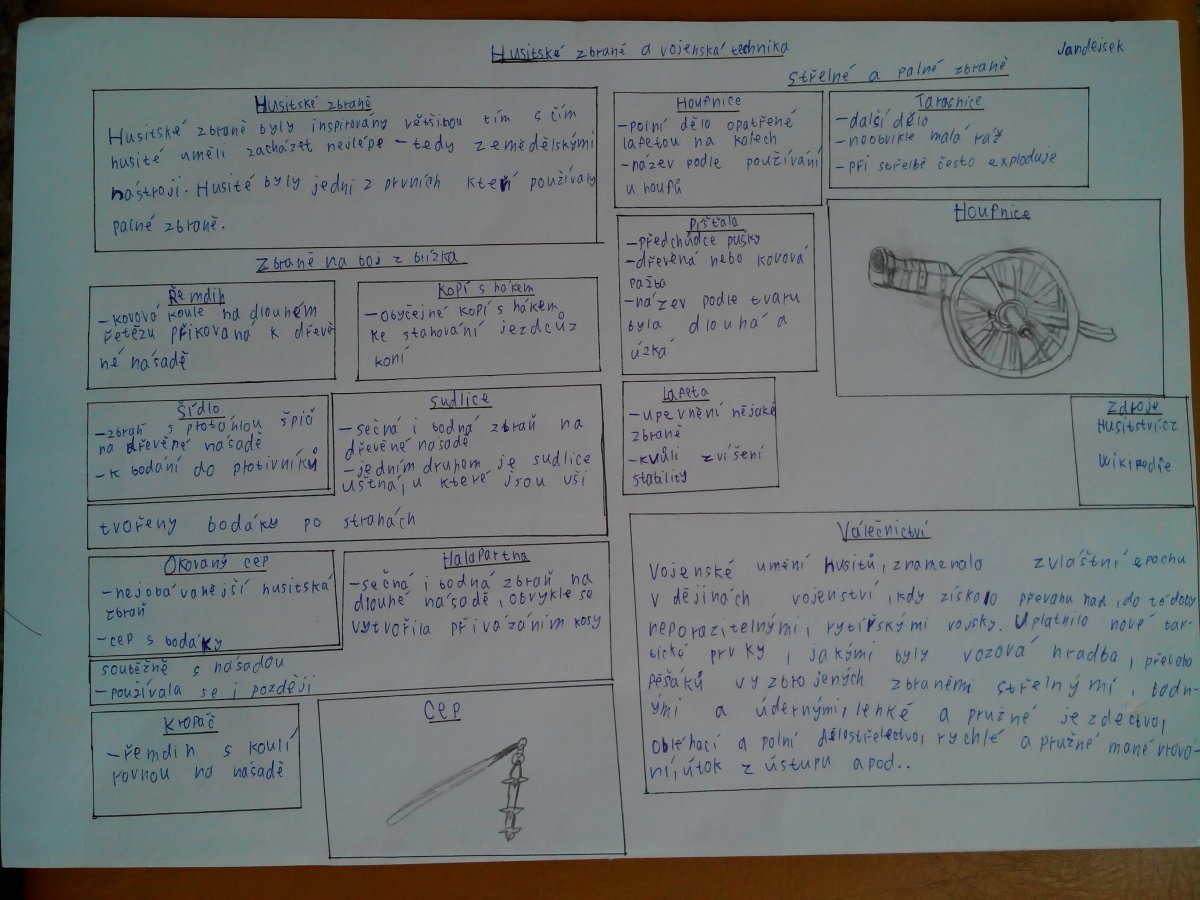 Husitské zbraně a vojenská technika
Jandejsek
Střelné a palné zbraně
Husitské zbraně
Husitské zbraně byly inspirovány většinou tím s čím
husité uměli zacházet nejlépe - tedy zemědělskými
nástroji. Husité byly jedni z prvních kteří používaly
palné zbraně.
Zbraně na boj z blízka
Řemdih
- kovová koule na dlouhém
řetězu přikovaná k dřevě-
né násadě
Kopí s hákem
- obyčejné kopí s hákem
ke stahování jezdců z
koní
Šídlo
- zbraň s protáhlou špicí
na dřevěné násadě
- k bodání do protivníků
Sudlice
- sečná i bodná zbraň na
dřevěné násadě
- jedním druhem je sudlice
ušatná, u které jsou uši
tvořeny bodáky po stranách
Okovaný cep
- nejobávanější husitská
zbraň
- cep s bodáky
Halapartna
- sečná i bodná zbraň na
dlouhé násadě, obvykle se
vytvořila přivázáním kosy
souběžně s násadou
- používala se i později
Kropáč
- řemdih s koulí
rovnou na násadě
Cep
Houfnice
- polní dělo opatřené
lapetou na kolech
- název podle používání
u houfů
Tarasnice
- další dělo
- neobvikle malá ráž
- při střelbě často exploduje
Píšťala
- předchůdce pušky
- dřevěná nebo kovová
pažba
- název podle tvaru
byla dlouhá a
úzká
Houfnice
Lapeta
- upevnění nějaké
zbraně
- kvůli zvíšení
stability
Zdroje
Husitství.cz
Wikipedije
Válečnictví
Vojenské umění husitů, znamenalo zvláštní epochu
v dějinách vojenství, kdy získalo převahu nad, do té doby
neporazitelnými, rytířskými vojsky. Uplatnilo nové tak-
tické prvky, jakými byly vozová hradba, převaha
pěšáků vyzbrojených zbraněmi střelnými, bodn-
ými a údernými, lehké a pružné jezdectvo,
obléhací a polní dělostřelectvo, rychlé a pružné manévrová-
ní, útok z ústupu apod..